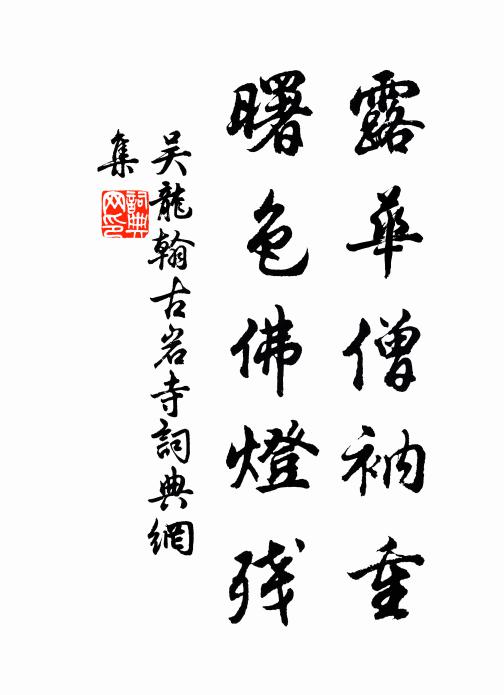 露華僧衲重
曙色佛燈残
吴龍翰古岩寺詞典網
集
詞典網印